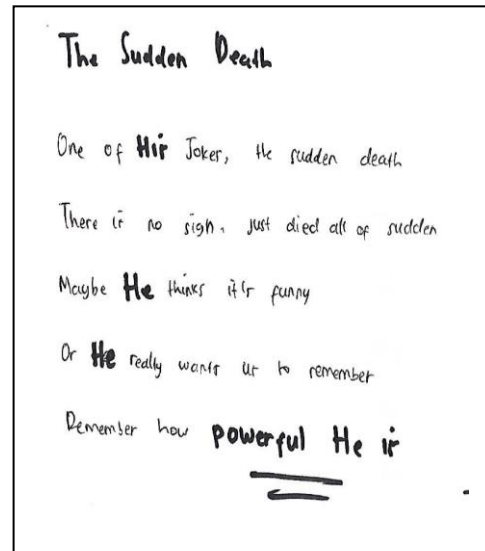 The Sudden Death
One of His Joker, the sudden death
There is no sign, just died all of sudden
Maybe He thinks it's funny
Or He really wants us to remember
Remember how powerful He is